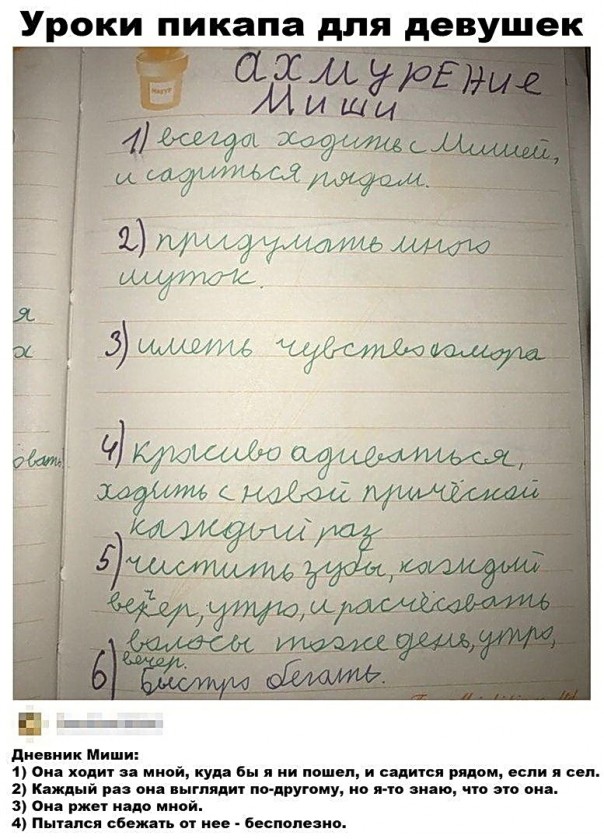 Уроки пикапа для девушек
ахмурение
Миши
1) всегда ходить с Мишей,
и садиться рядом.
2) придумать много
шуток.
я
х
3) иметь чувство юмора
4) красиво адиваться,
овать
ходить с новой причёской
каждый раз
5) чистить зубы, каждый
вечер, утро, и расчёсовать
волосы тоже день, утро,
вечер.
6) Быстро бегать.
Дневник Миши:
1) Она ходит за мной, куда бы я ни пошел, и садится рядом, если я сел.
2) Каждый раз она выглядит по-другому, но я-то знаю, что это она.
3) Она ржет надо мной.
4) Пытался сбежать от нее - бесполезно.